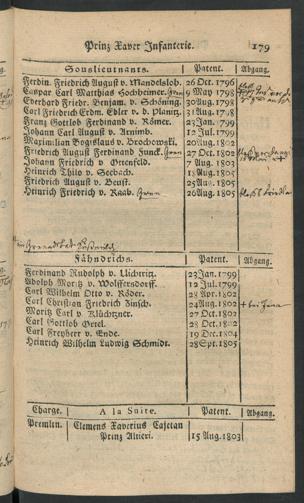 Prinz Xaver Infanterie. 179
Souslieutnants. Patent. Abgang.
Ferdin. Friedrich August v. Mandelsloh. 26 Oct. 1796
Caspar Carl Matthias Hochheimer. 9 May 1798
Eberhard Friedr. Benjam. v. Schöning. 30 Aug. 1798
Carl Friedrich Erdm. Edler v. d. Planitz. 31 Aug. 1798
Franz Gottlob Ferdinand v. Römer. 23 Jan. 1799
Johann Carl August v. Arnimb. 12 Jul. 1799
Maximilian Bogislaus v. Brochowski. 20 Aug. 1802
Friedrich August Ferdinand Funck. 27 Oct. 1802
Johann Friedrich v. 7 Aug. 1803
Heinrich Thilo v. Seebach. 18 Aug. 1805
Friedrich August v. Beust. 25 Aug. 1805
Heinrich Friedrich v. Raab. 26 Aug. 1805
Fähndrichs. Patent. Abgang.
Ferdinand Rudolph v. Üchtritz. 23 Jan. 1799
Adolph Moritz v. Wolffersdorff. 12 Jul. 1799
Carl Wilhelm Otto v. Röder. 28 Apr. 1802
Carl Christian Friedrich 24 Aug. 1802
Moritz Carl v. Klüchtzner. 27 Oct. 1802
Carl Gottlob Oertel. 28 Oct. 1802
Carl Freyherr v. Ende. 19 Dec. 1804
Heinrich Wilhelm Ludwig Schmidt. 28 Spt. 1805
Charge. A la Suite. Patent. Abgang.
Premlin. Clemens Xaverius Cajetan
Prinz Altieri. 15 Aug. 1803